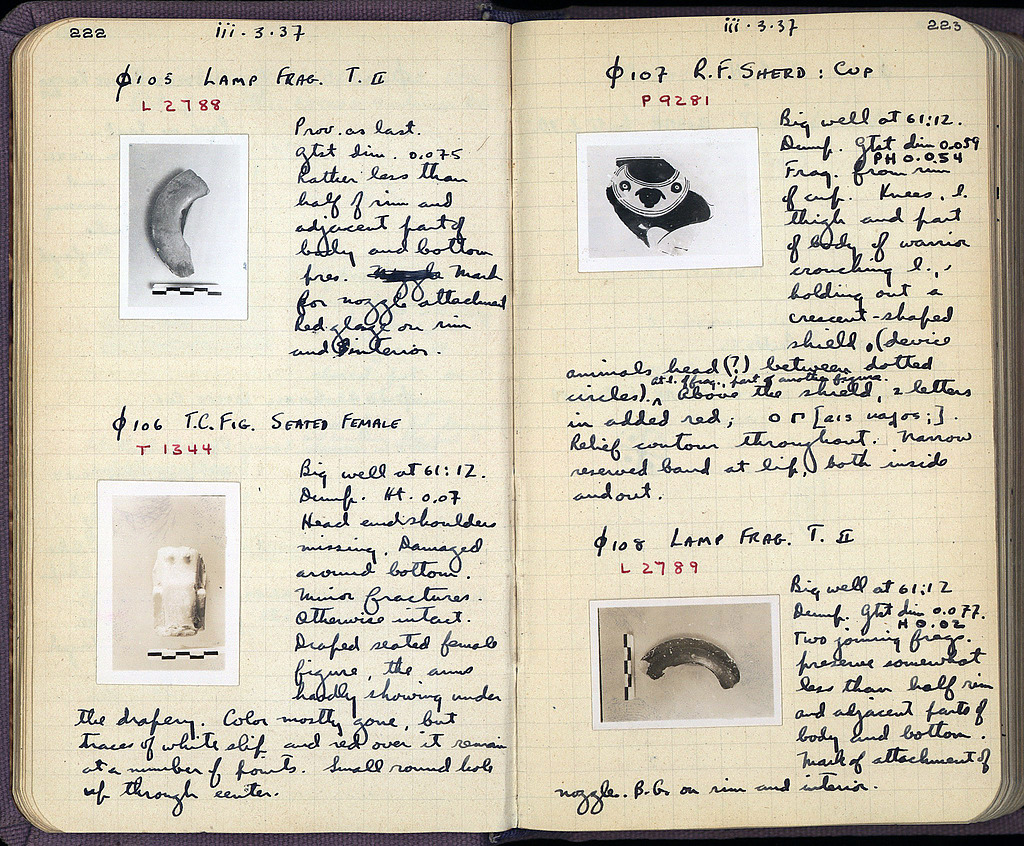 222
iii · 3 · 37
φ105 LAMP FRAG. T. II
L 2788
Prov. as last.
Gtst dim. 0.075
Rather less than
half of rim and
adjacent part of
body and bottom
pres. Mark
for nozzle attachment
Red glaze on rim
and interior.
φ106 T.C. FIG. SEATED FEMALE
T 1344
Big well at 61:12.
Dump. Ht. 0.07
Head and shoulders
missing. Damaged
around bottom.
Minor fractures.
Otherwise intact.
Draped seated female
figure, the arms
hardly showing under
the drapery. Color mostly gone, but
traces of white slip and red over it remain
at a number of points. Small round hole
up through center.
iii · 3 · 37
223
φ107 R.F. SHERD : CUP
P 9281
Big well at 61:12.
Dump. Gtst dim 0.059
PH 0.054
Frag. from rim
of cup. Knees, l.
thigh and part
of body of warrior
crouching l.,
holding out a
crescent-shaped
shield, (device
animals head (?) between dotted
at l. of frag., part of another figure.
circles). Above the shield, 2 letters
in added red; ο π [αις καλος;].
Relief contour throughout. Narrow
reserved band at lip, both inside
and out.
φ108 LAMP FRAG. T. II
L 2789
Big well at 61:12
Dump. Gtst dim 0.077.
H 0.02
Two joining frags.
preserve somewhat
less than half rim
and adjacent parts of
body and bottom.
Mark of attachment of
nozzle. B.G. on rim and interior.